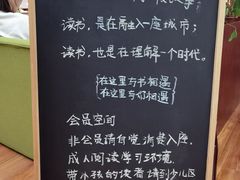 读书,是在融入一座城市;
读书,也是在理解一个时代。
在这里与书相遇
在这里与你相遇
会员空间
非会员请自觉消费入座
成人阅读学习环境
带小孩的读者请到少儿区